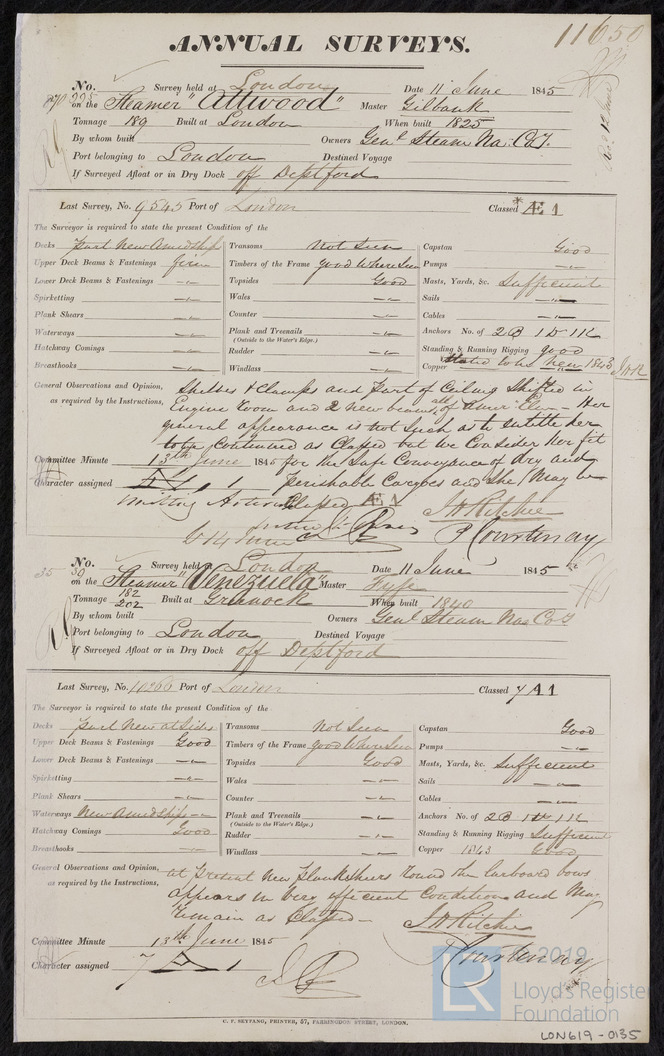 ANNUAL SURVEYS.
11650
No. Survey held at London Date 11 June 1845
on the Steamer "Attwood" Master Gilbank
Tonnage 189 Built at London When built 1825
By whom built Owners Genl Steam Na: Co
Port belonging to London Destined Voyage
If Surveyed Afloat or in Dry Dock off Deptford
Last Survey, No. 9545 Port of London Classed *Æ 1
The Surveyor is required to state the present Condition of the
Decks part New Amidships Transoms Not Seen Capstan Good
Upper Deck Beams & Fastenings Timbers of the Frame good Where Seen Pumps
Lower Deck Beams & Fastenings Topsides Good Masts, Yards, &c. Sufficient
Spirketting Wales Sails
Plank Shears Counter Cables
Waterways Plank and Treenails Anchors No. of 2B 1S 1K
(Outside to the Water's Edge.)
Hatchway Comings Rudder Standing & Running Rigging good
Breasthooks Windlass Copper new 1843
General Observations and Opinion, Shelves & Clamps and part of Ceiling Shifted in
as required by the Instructions, Engine Room and 2 New beams, of Amer Elm - Her
general appearance is not such as to entitle her
to be continued as Classed but We Consider her fit
Committee Minute 13th June 1845 for the Safe Conveyance of dry and
Character assigned perishable Cargoes and She May be
Classed Æ 1 J H Ritchie
P Courtenay
No. Survey held London Date 11 June 1845
on the Steamer "Venezuela" Master Fyfe
Tonnage 182 Built at Greenock When built 1840
202
By whom built Owners Genl Steam Na: Co
Port belonging to London Destined Voyage
If Surveyed Afloat or in Dry Dock off Deptford
Last Survey, No. 10266 Port of London Classed 7 A 1
The Surveyor is required to state the present Condition of the
Decks part New at Sides Transoms Not Seen Capstan Good
Upper Deck Beams & Fastenings Good Timbers of the Frame good Where Seen Pumps
Lower Deck Beams & Fastenings Topsides Good Masts, Yards, &c. Sufficient
Spirketting Wales Sails
Plank Shears Counter Cables
Waterways New Amidships Plank and Treenails Anchors No. of 2B 1S 1K
(Outside to the Water's Edge.)
Hatchway Comings Good Rudder Standing & Running Rigging Sufficient
Breasthooks Windlass Copper 1843 Good
General Observations and Opinion, at Present New Plank Sheers round the larboard bows
as required by the Instructions, Appears in Very efficient Condition and May
Remain as Classed - J H Ritchie
Committee Minute 13th June 1845
P Courtenay
Character assigned 7 A 1
LR
2019
Lloyd's Register
Foundation
C. F. SEYFANG, PRINTER, 57, FARRINGDON STREET, LONDON.
LON619-0135